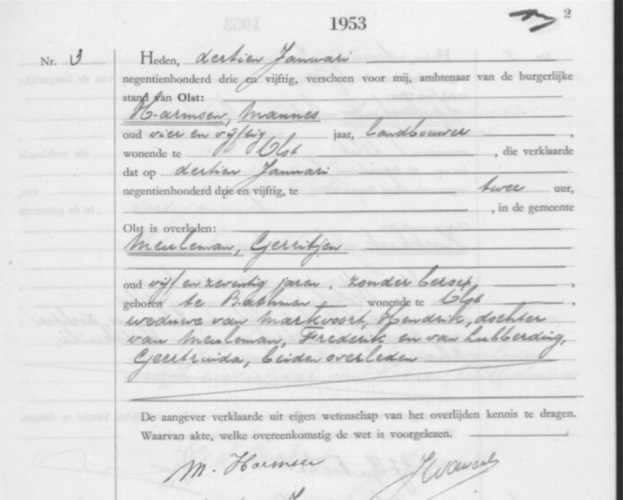 1953
2
Nr. 3 Heden, dertien Januari
negentienhonderd drie en vijftig, verscheen voor mij, ambtenaar van de burgerlijke
stand van Olst:
Harmsen, Mannes
oud vier en vijftig jaar, landbouwer ,
wonende te Olst , die verklaarde
dat op dertien Januari
negentienhonderd drie en vijftig, te twee uur,
, in de gemeente
Olst is overleden:
Meuleman, Gerritjen
oud vijf en zeventig jaren, zonder beroep,
geboren te Bathmen wonende te Olst
weduwe van Markvoort, Hendrik, dochter
van Meuleman, Frederik en van Lubberding,
Geertruida, beiden overleden
De aangever verklaarde uit eigen wetenschap van het overlijden kennis te dragen.
Waarvan akte, welke overeenkomstig de wet is voorgelezen.
M. Harmsen